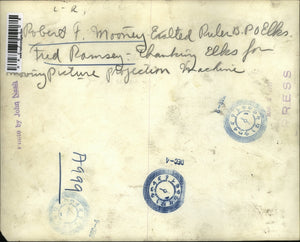 L-R,
Robert F. Mooney Exalted Ruler B.P.O Elks.
Fred Ramsey - Thanking Elks for
moving Picture projection Machine
A999
DEC-4
PRESS
Photo by John